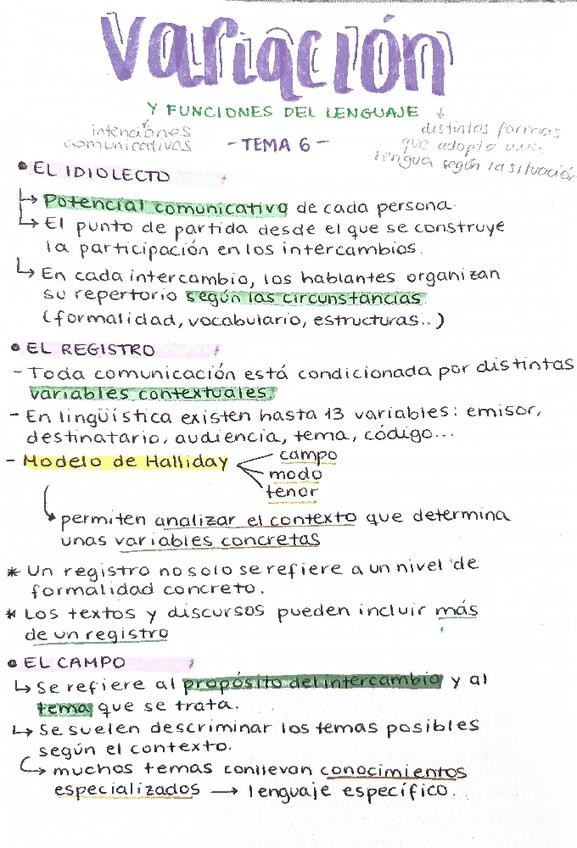 Variación
Y FUNCIONES DEL LENGUAJE
intenciones
comunicativas
- TEMA 6 -
distintas formas
que adopta una
lengua según la situación
• EL IDIOLECTO
↳ Potencial comunicativo de cada persona.
↳ El punto de partida desde el que se construye
la participación en los intercambios.
↳ En cada intercambio, los hablantes organizan
su repertorio según las circunstancias
(formalidad, vocabulario, estructuras..)
• EL REGISTRO
- Toda comunicación está condicionada por distintas
variables contextuales.
- En lingüística existen hasta 13 variables: emisor,
destinatario, audiencia, tema, código...
- Modelo de Halliday
campo
modo
tenor
permiten analizar el contexto que determina
unas variables concretas
* Un registro no solo se refiere a un nivel de
formalidad concreto.
* Los textos y discursos pueden incluir más
de un registro
• EL CAMPO
↳ Se refiere al propósito del intercambio y al
tema que se trata.
↳ Se suelen descriminar los temas posibles
según el contexto.
↳ muchos temas conllevan conocimientos
especializados → lenguaje específico.